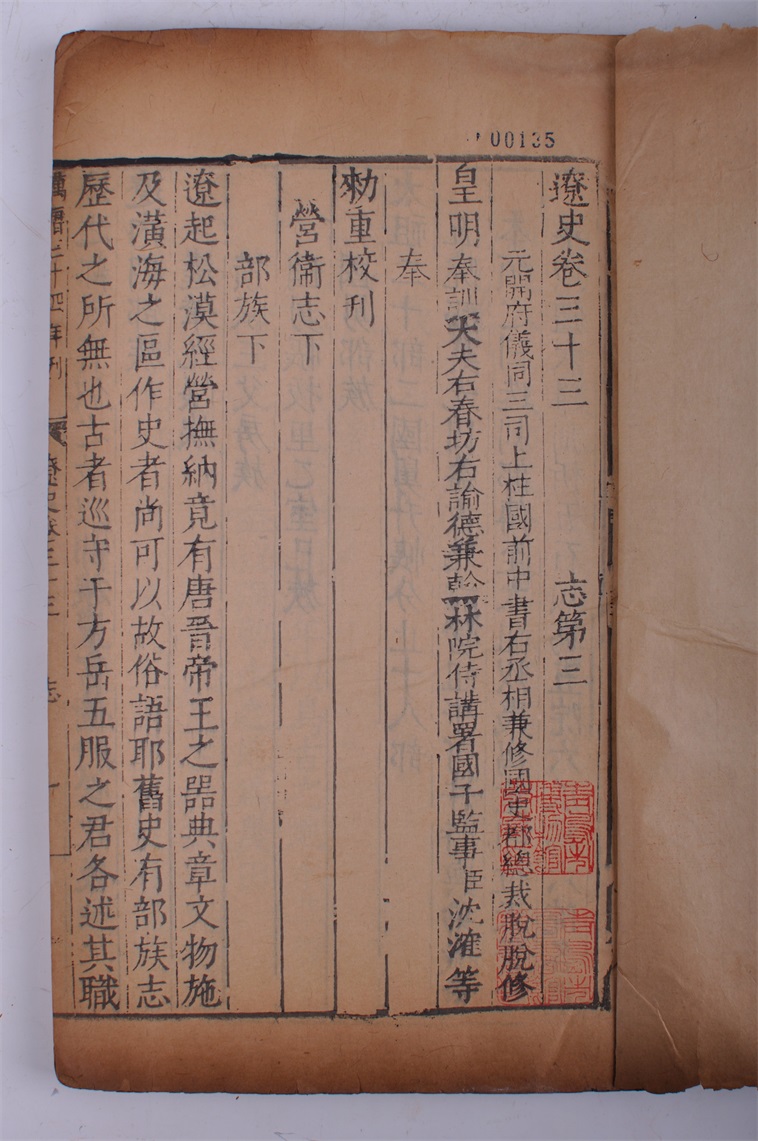 00135
遼史卷三十三 志第三
元開府儀同三司上柱國前中書右丞相兼修國史都總裁脫脫修
皇明奉訓大夫右春坊右諭德兼翰林院侍講署國子監事臣沈㴶等
奉
勑重校刊
營衞志下
部族下
遼起松漠經營撫納竟有唐晋帝王之器典章文物施
及潢海之區作史者尚可以故俗語耶舊史有部族志
歷代之所無也古者巡守于方岳五服之君各述其職
萬曆三十四年刊 遼史卷三十三 志 一